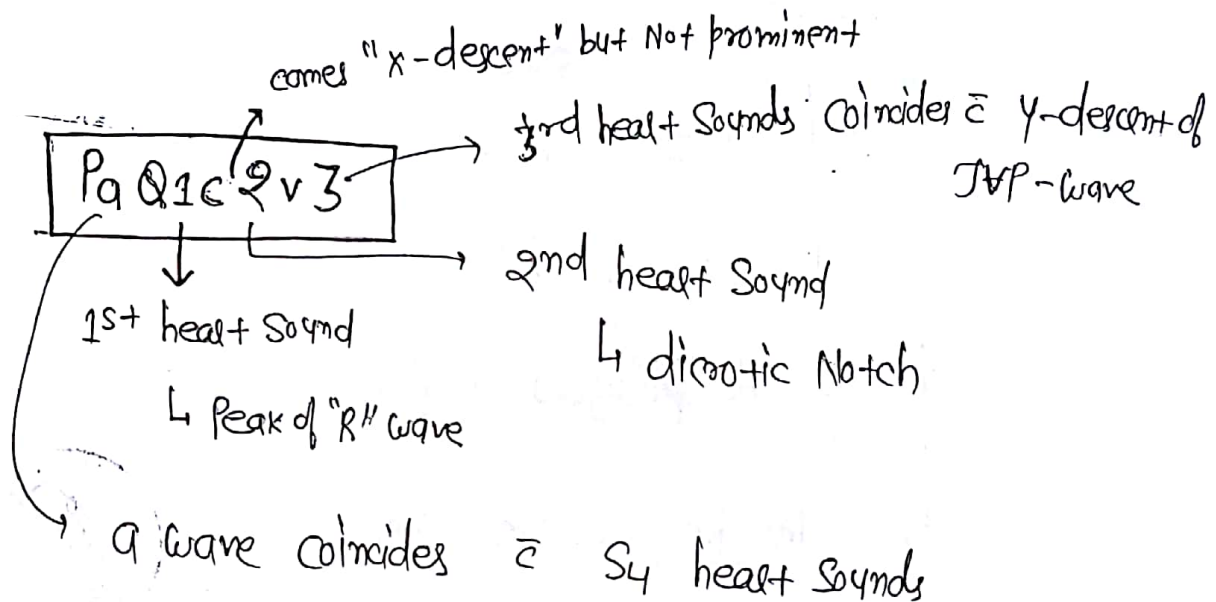 comes "x-descent" but Not prominent
Pa Q1c2v3
3rd heart Sounds coincides c̄ y-descent of
JVP-wave
2nd heart Sound
↳ dicrotic Notch
1st heart Sound
↳ Peak of "R" wave
a wave coincides c̄ S4 heart Sounds